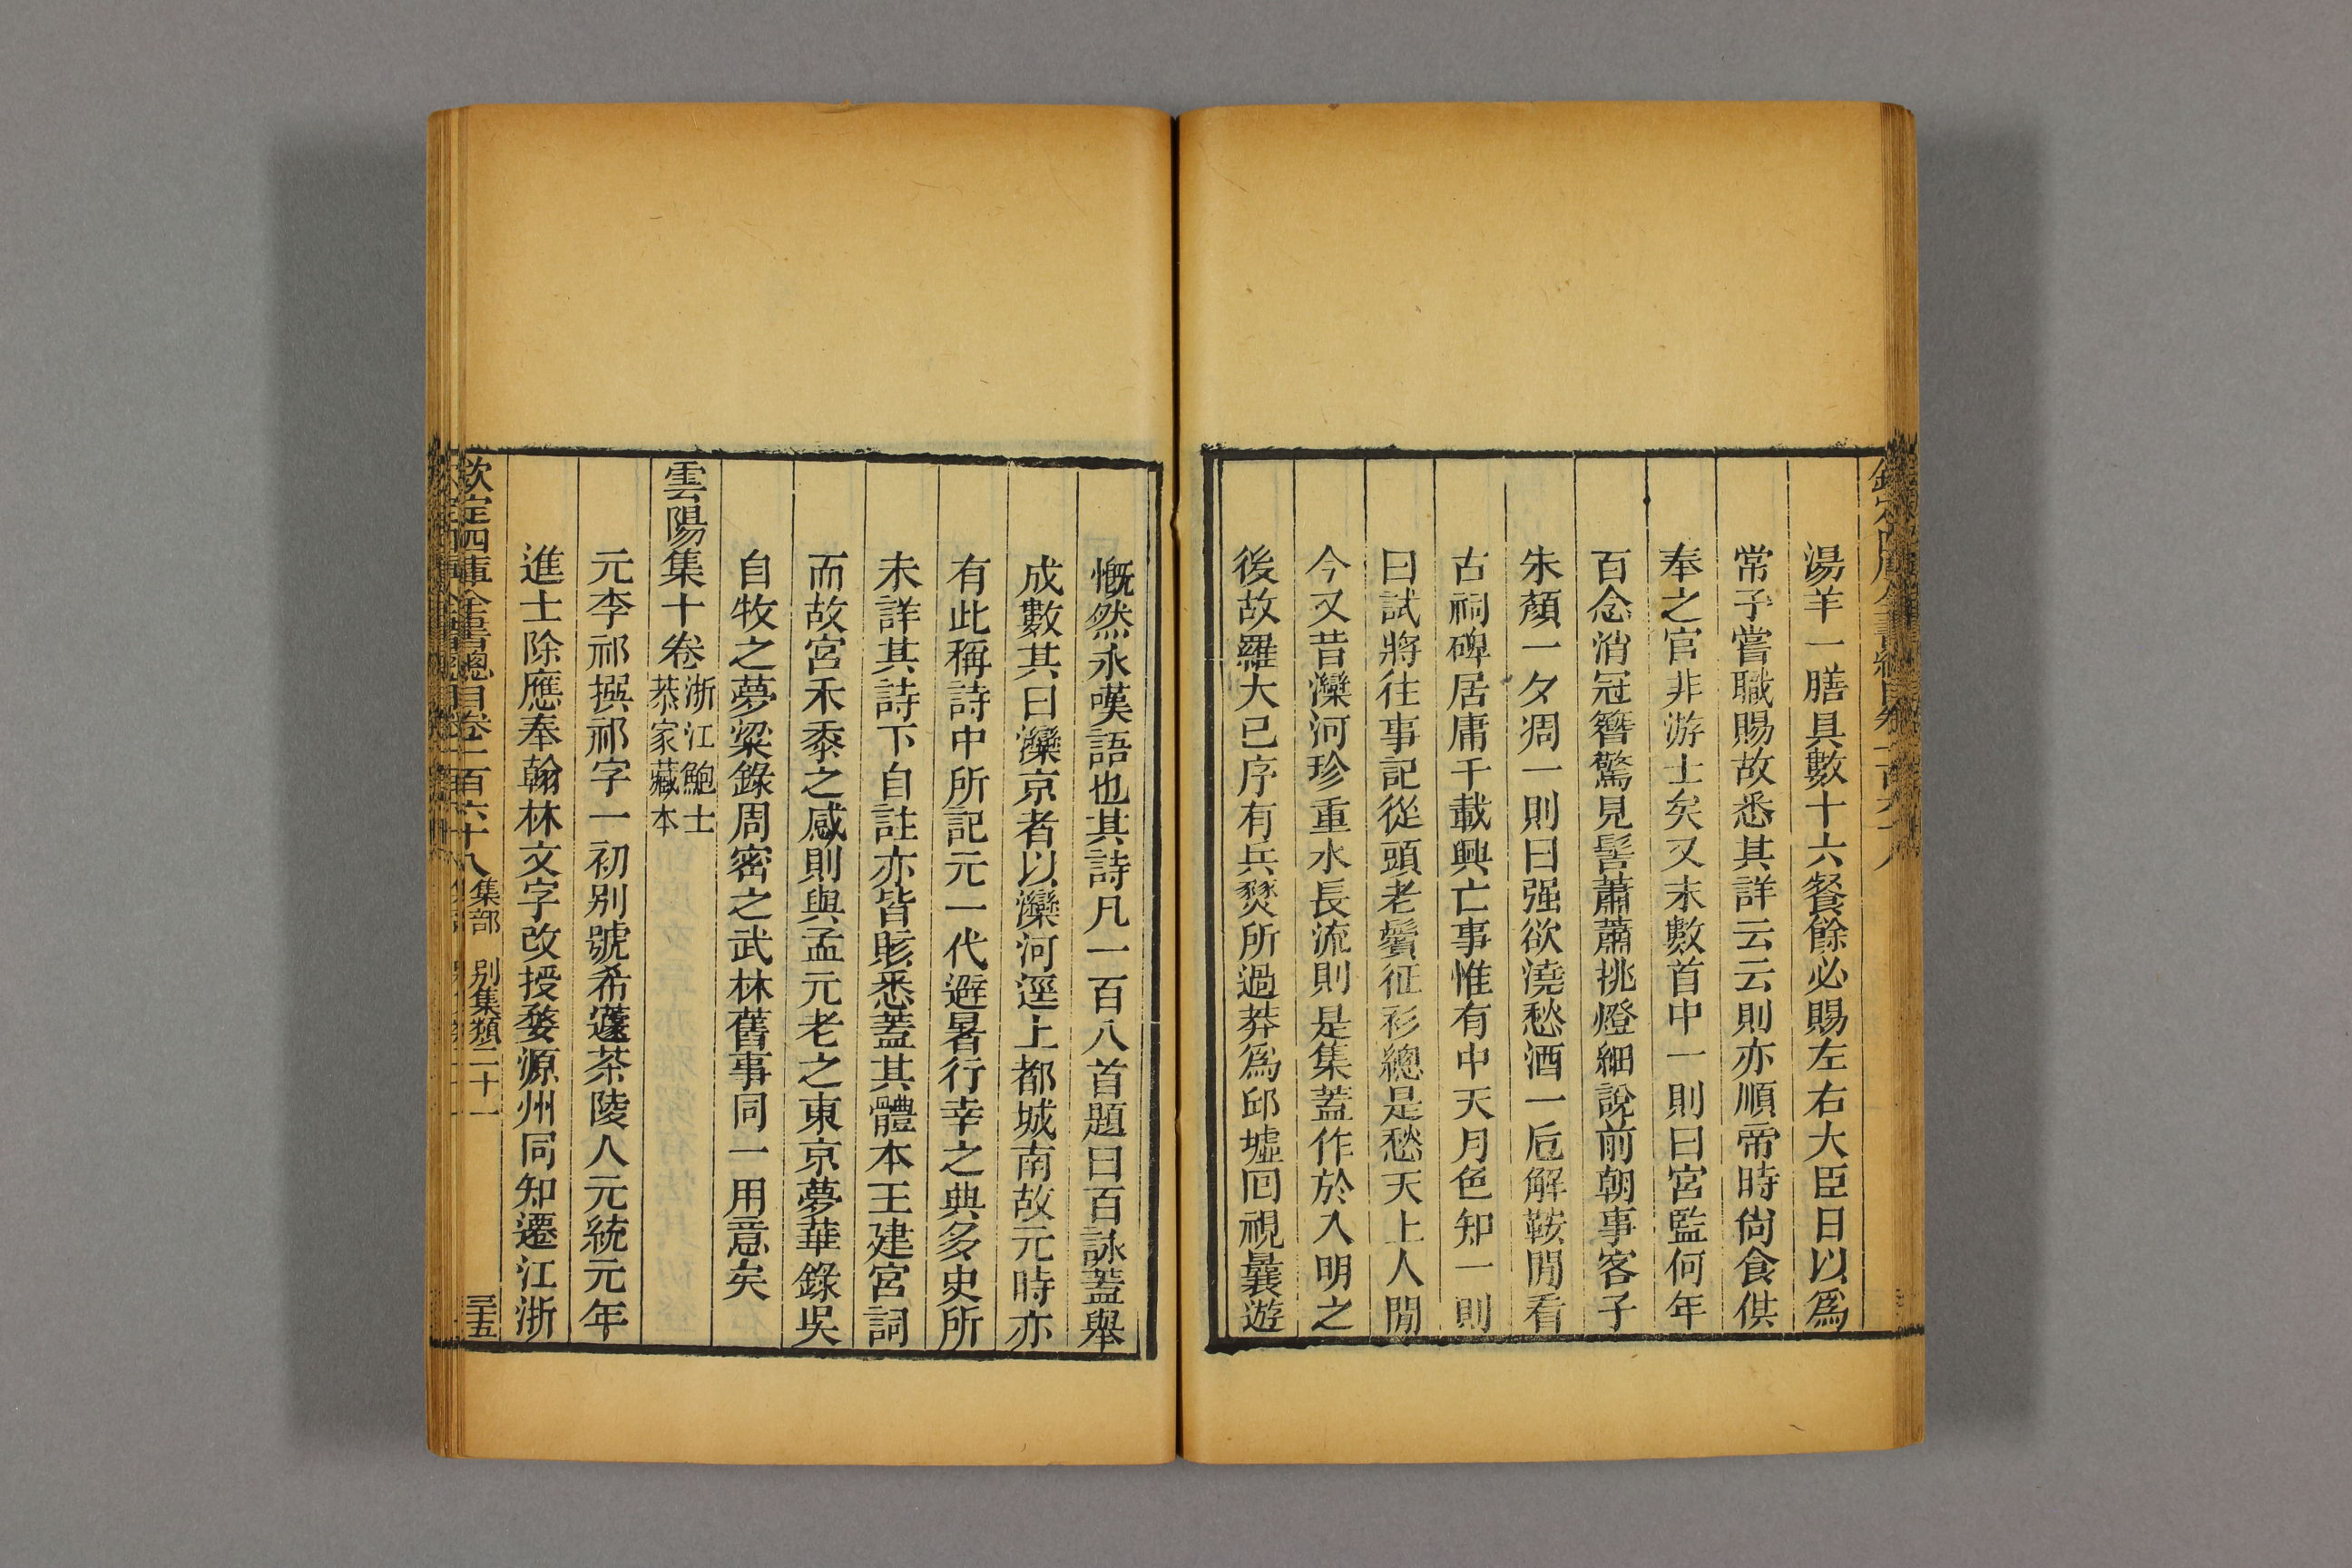 湯羊一膳具數十六餐餘必賜左右大臣日以爲
常予嘗職賜故悉其詳云云則亦順帝時尙食供
奉之官非游士矣又末數首中一則曰宮監何年
百念消冠簪驚見髩蕭蕭挑燈細說前朝事客子
朱顏一夕凋一則曰强欲澆愁酒一卮解鞍閒看
古祠碑居庸千載興亡事惟有中天月色知一則
曰試將往事記從頭老鬢征衫總是愁天上人閒
今又昔灤河珍重水長流則是集蓋作於入明之
後故羅大已序有兵燹所過莽爲邱墟囘視曩遊
慨然永嘆語也其詩凡一百八首題曰百詠蓋舉
成數其曰灤京者以灤河逕上都城南故元時亦
有此稱詩中所記元一代避暑行幸之典多史所
未詳其詩下自註亦皆賅悉蓋其體本王建宮詞
而故宮禾黍之感則與孟元老之東京夢華錄吳
自牧之夢粱錄周密之武林舊事同一用意矣
雲陽集十卷浙江鮑士恭家藏本
元李祁撰祁字一初别號希蘧茶陵人元統元年
進士除應奉翰林文字改授婺源州同知遷江浙
欽定四庫全書總目卷一百六十八 集部 别集類二十一 三十五